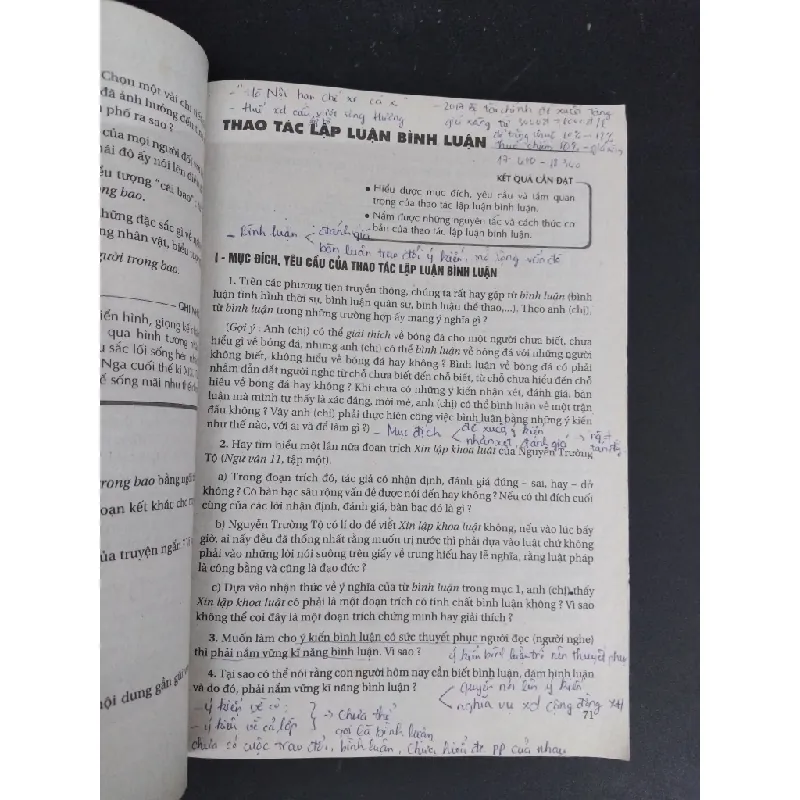 Chọn một vài chi tiết
đã ảnh hưởng đến
phố ra sao ?
của mọi người đối với
ái độ ấy nói lên điều
ểu tượng "cái bao"
ong bao.
những đặc sắc về
ng nhân vật, biểu tượng
gười trong bao.
GHI NHỚ
iển hình, giọng kể ch
qua hình tượng nh
u sắc lối sống hèn nh
Nga cuối thế kỉ XIX
ể sống mãi như thế
rong bao bằng ngôi
đoạn kết khác cho
ủa truyện ngắn
nội dung gần gũi
THAO TÁC LẬP LUẬN BÌNH LUẬN
KẾT QUẢ CẦN ĐẠT
• Hiểu được mục đích, yêu cầu và tầm quan
trọng của thao tác lập luận bình luận.
• Nắm được những nguyên tắc và cách thức cơ
bản của thao tác lập luận bình luận.
- Bình luận : đánh giá
bàn luận trao đổi ý kiến, mở rộng vấn đề
I - MỤC ĐÍCH, YÊU CẦU CỦA THAO TÁC LẬP LUẬN BÌNH LUẬN
1. Trên các phương tiện truyền thông, chúng ta rất hay gặp từ bình luận (bình
luận tình hình thời sự, bình luận quân sự, bình luận thể thao,...). Theo anh (chị),
từ bình luận trong những trường hợp ấy mang ý nghĩa gì ?
(Gợi ý : Anh (chị) có thể giải thích về bóng đá cho một người chưa biết, chưa
hiểu gì về bóng đá, nhưng anh (chị) có thể bình luận về bóng đá với những người
không biết, không hiểu về bóng đá hay không ? Bình luận về bóng đá có phải
nhằm dẫn dắt người nghe từ chỗ chưa biết đến chỗ biết, từ chỗ chưa hiểu đến chỗ
hiểu về bóng đá hay không ? Khi chưa có những ý kiến nhận xét, đánh giá, bàn
luận mà mình tự thấy là xác đáng, mới mẻ, anh (chị) có thể bình luận về một trận
đấu không ? Vậy anh (chị) phải thực hiện công việc bình luận bằng những ý kiến
như thế nào, với ai và để làm gì ?)
- Mục đích đề xuất ý kiến
nhận xét, đánh giá
2. Hãy tìm hiểu một lần nữa đoạn trích Xin lập khoa luật của Nguyễn Trường
Tộ (Ngữ văn 11, tập một).
a) Trong đoạn trích đó, tác giả có nhận định, đánh giá đúng – sai, hay – dở
không ? Có bàn bạc sâu rộng vấn đề được nói đến hay không ? Nếu có thì đích cuối
cùng của các lời nhận định, đánh giá, bàn bạc đó là gì ?
b) Nguyễn Trường Tộ có lí do để viết Xin lập khoa luật không, nếu vào lúc bấy
giờ, ai nấy đều đã thống nhất rằng muốn trị nước thì phải dựa vào luật chứ không
phải vào những lời nói suông trên giấy về trung hiếu hay lễ nghĩa, rằng luật pháp
là công bằng và cũng là đạo đức ?
c) Dựa vào nhận thức về ý nghĩa của từ bình luận trong mục 1, anh (chị) thấy
Xin lập khoa luật có phải là một đoạn trích có tính chất bình luận không ? Vì sao
không thể coi đây là một đoạn trích chứng minh hay giải thích ?
3. Muốn làm cho ý kiến bình luận có sức thuyết phục người đọc (người nghe)
thì phải nắm vững kĩ năng bình luận. Vì sao ?
4. Tại sao có thể nói rằng con người hôm nay cần biết bình luận, dám bình luận
và do đó, phải nắm vững kĩ năng bình luận ?
quyền nói lên ý kiến
nghĩa vụ xd cộng đồng XH
71
- ý kiến về cỏ :
- ý kiến về cả lớp
→ Chưa thể
gọi là bình luận
chưa có cuộc trao đổi, bình luận, chưa hiểu đc PP của nhau